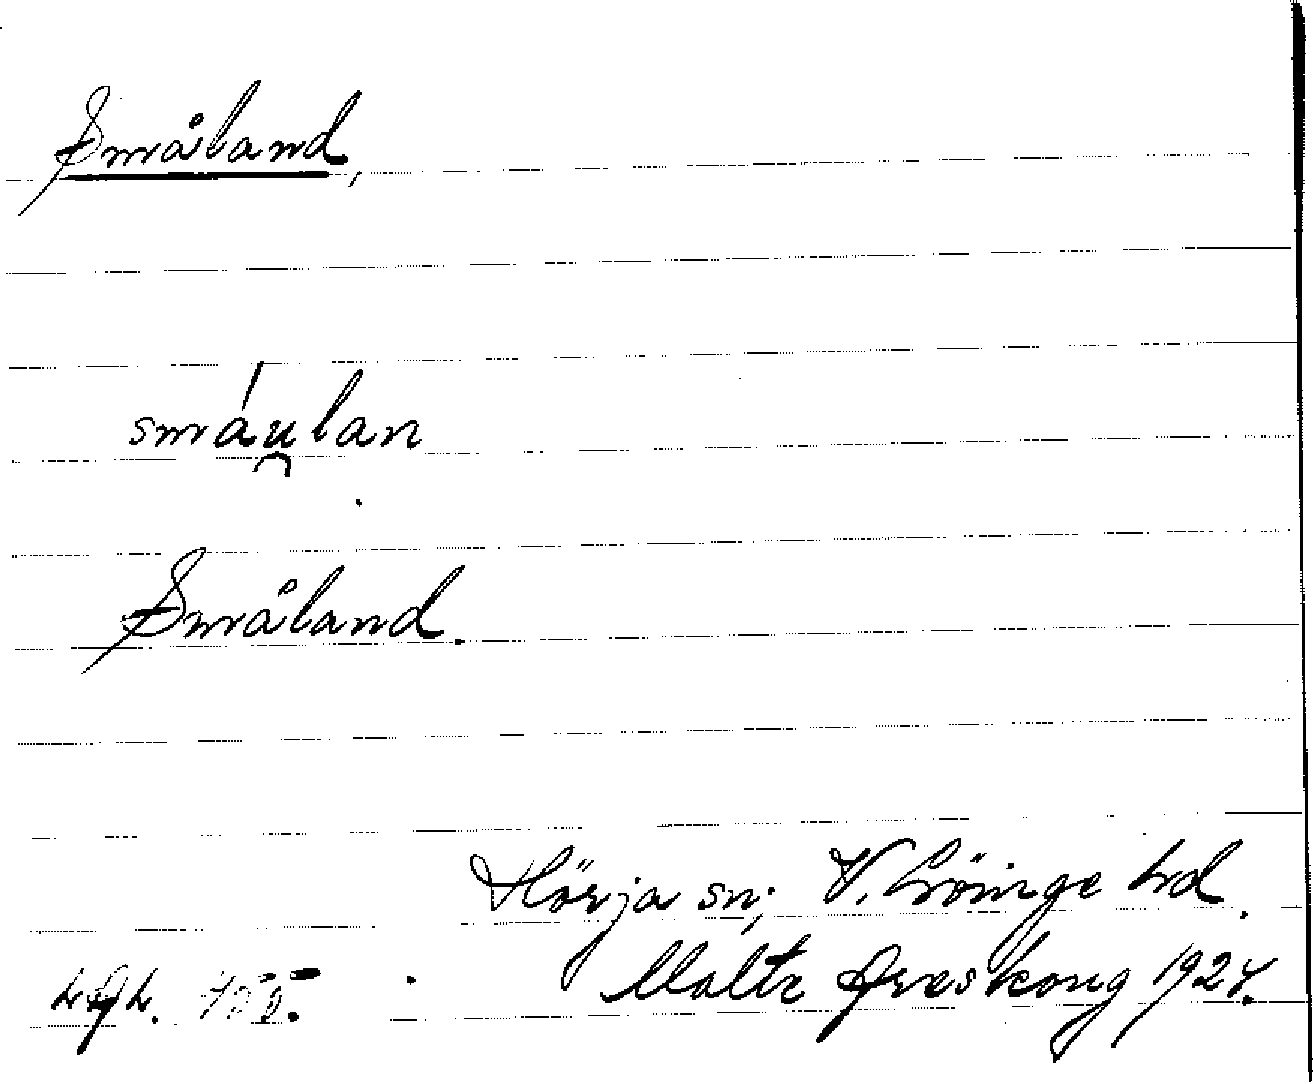 Småland,
smáu̯lan
Småland.
Hörja sn; V. Göinge hd.
Malte Areskoug 1924.